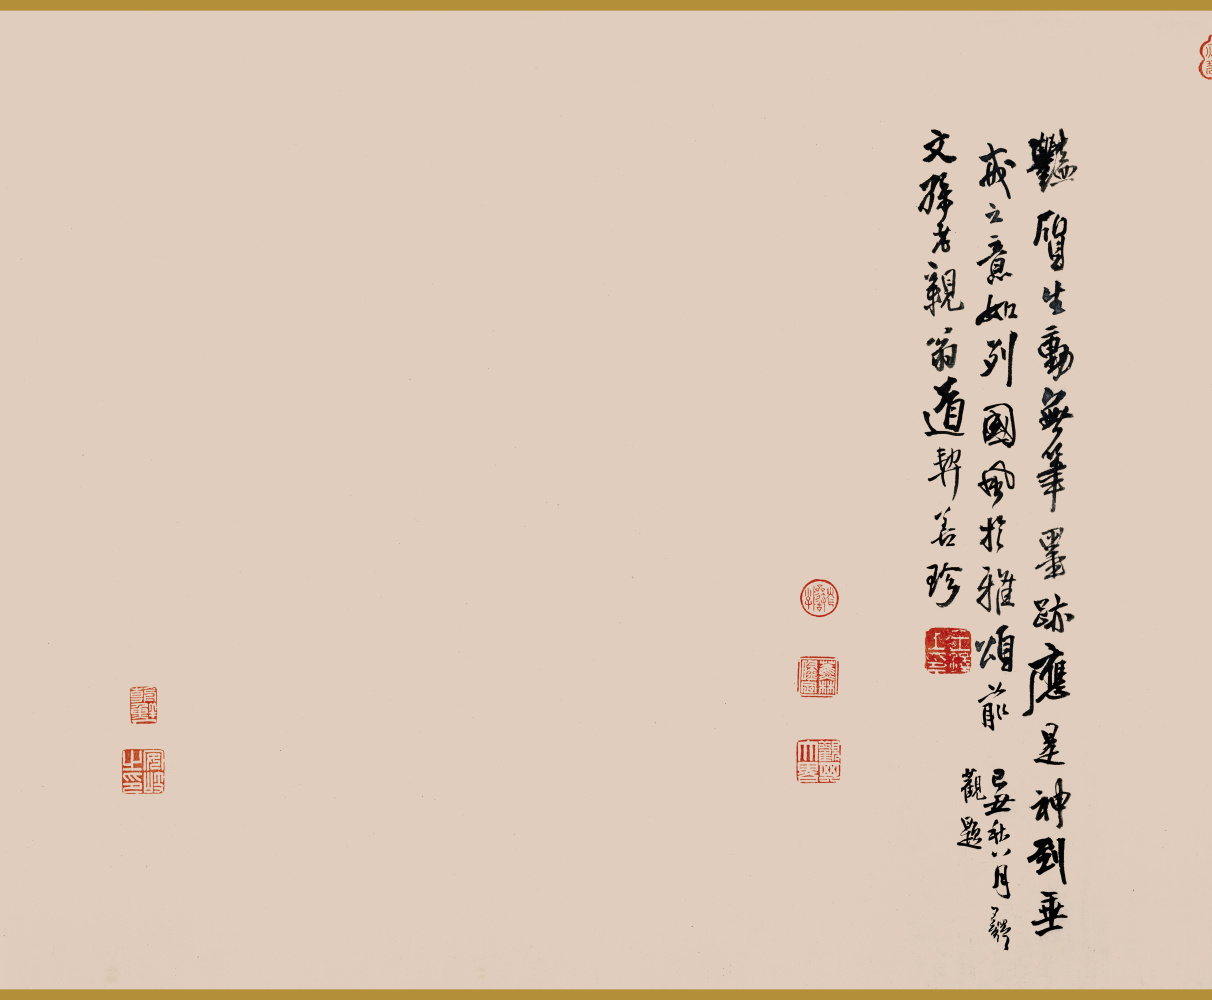 豔質生動無筆墨跡應是神到垂
戒之意如列國風於雅頌前
己丑秋八月
觀題
文孫老親翁道契善珍